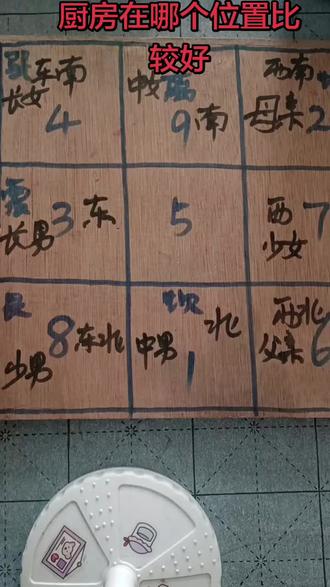 厨房在哪个位置比
较好
巽东南
长女
4
中女
9南
西南
母亲2
震
3东
长男
5
西7
少女
艮
8东北
少男
坎
北
中男
1
西北
父亲6